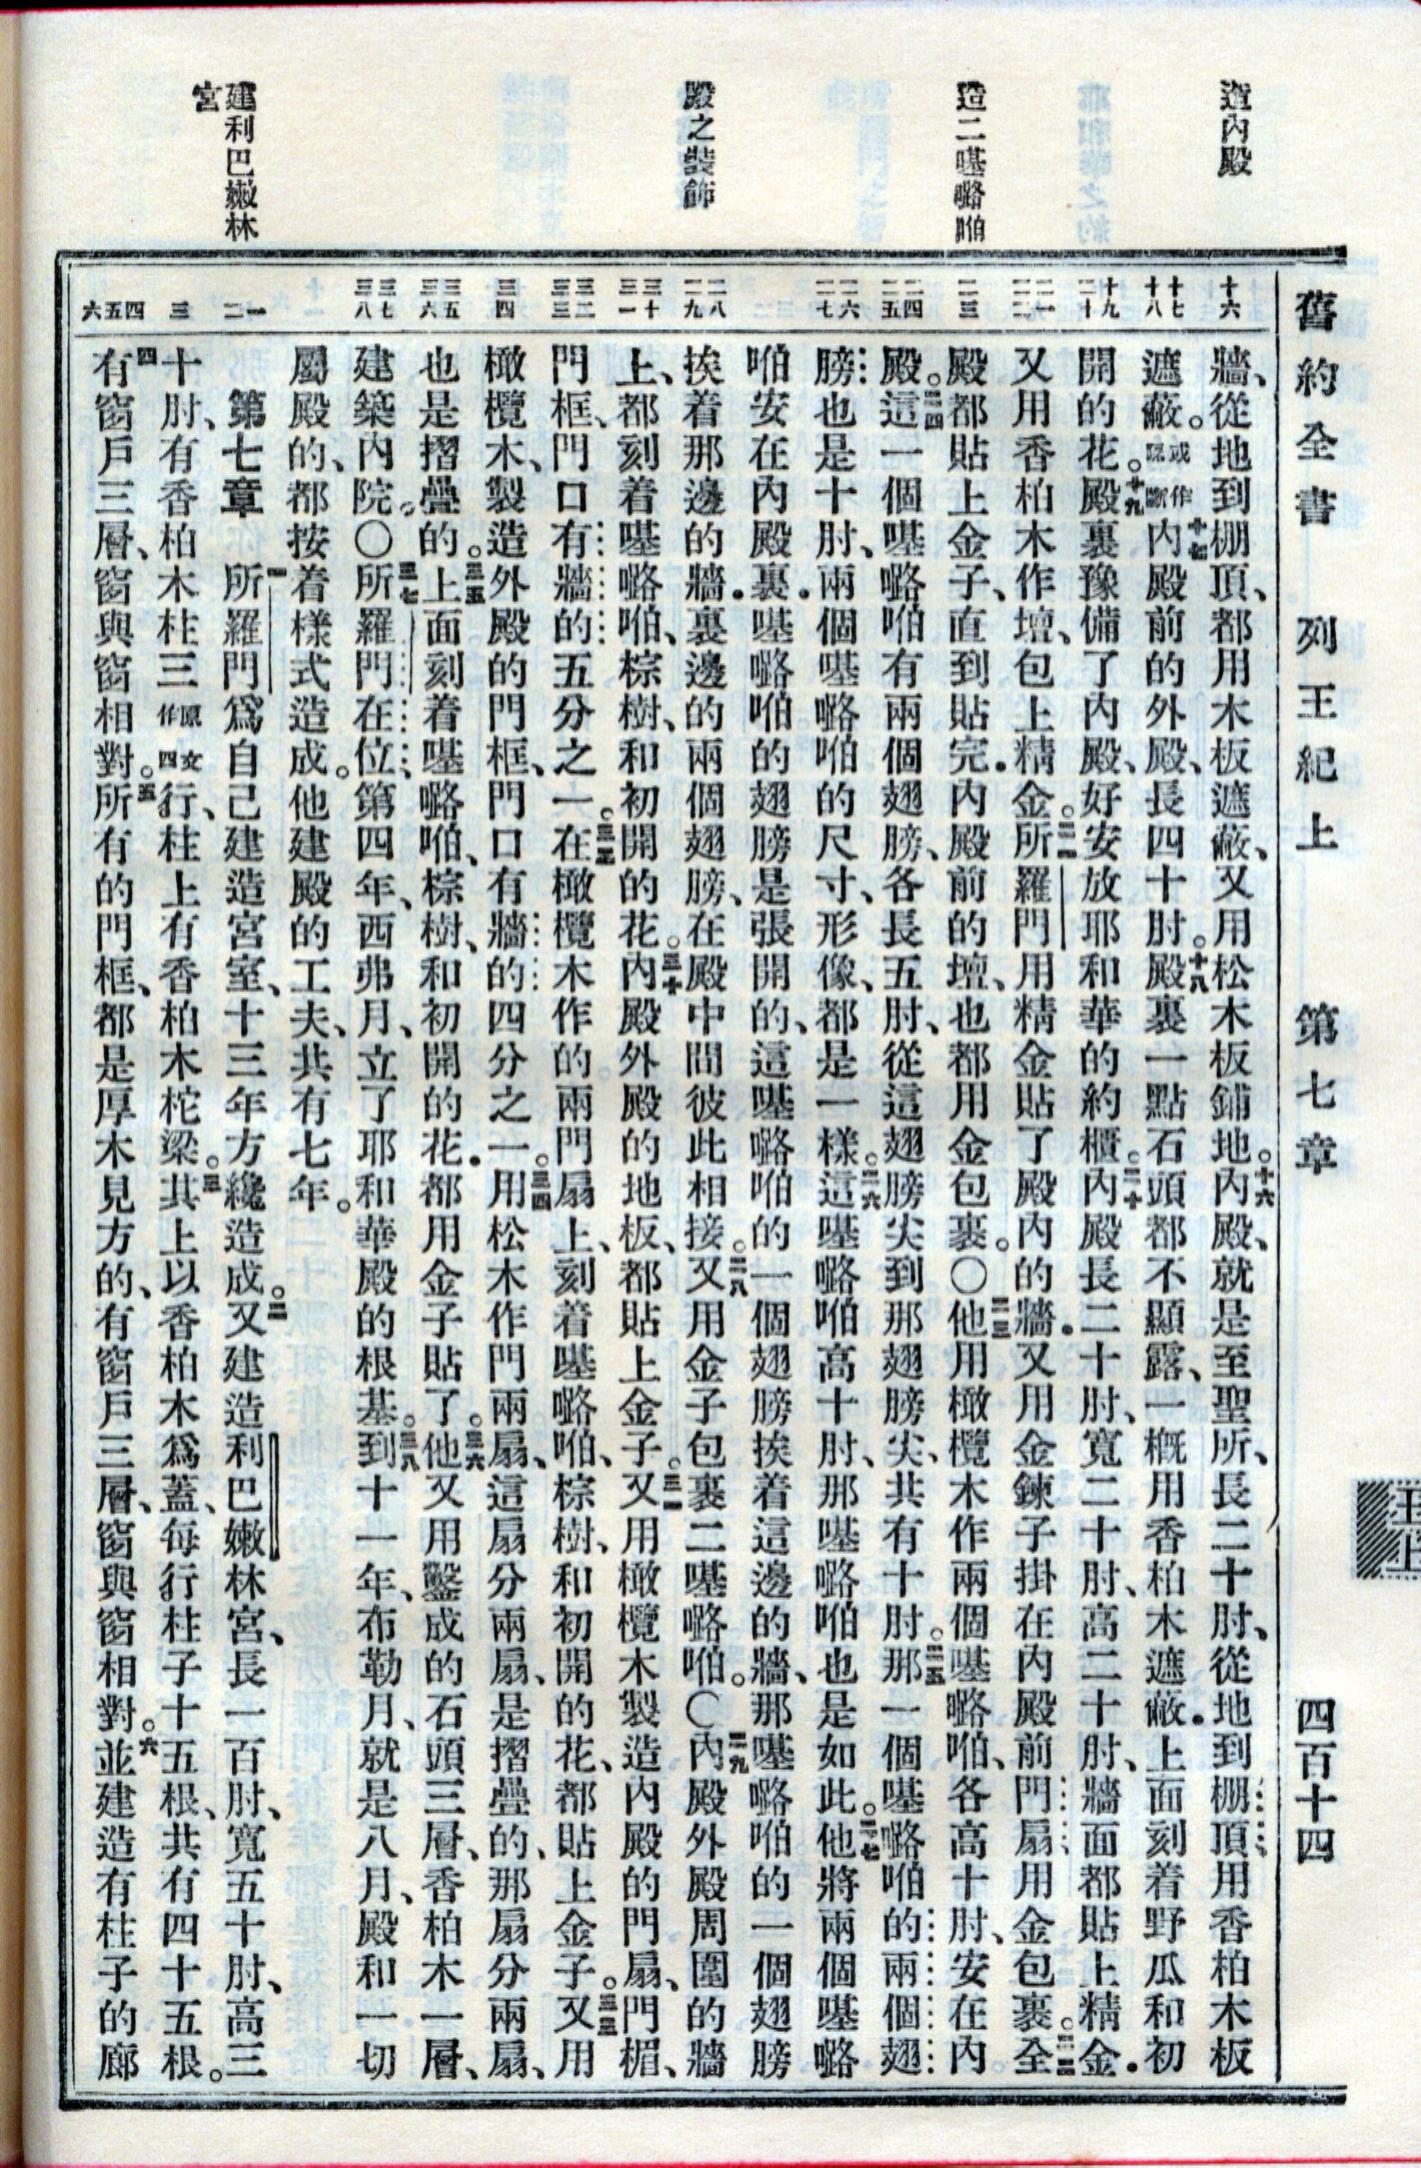 舊約全書 列王紀上 第七章 四百十四
王上
造內殿
造二𠼻㗉㗖
殿之裝飾
建利巴嫩林宮
十六
十七 十八
十九 二十
二一 二二
二三
二四 二五
二六 二七
二八 二九
三十 三一
三二 三三
三四
三五 三六
三七 三八
一 二
三
四 五 六
牆、從地到棚頂、都用木板遮蔽、又用松木板鋪地。十六內殿、就是至聖所、長二十肘、從地到棚頂用香柏木板
遮蔽。或作隔斷十七內殿前的外殿、長四十肘。十八殿裏一點石頭都不顯露、一概用香柏木遮蔽．上面刻着野瓜和初
開的花。十九殿裏豫備了內殿、好安放耶和華的約櫃。二十內殿長二十肘、寬二十肘、高二十肘、牆面都貼上精金．
又用香柏木作壇、包上精金。二一所羅門用精金貼了殿內的牆．又用金鍊子掛在內殿前門扇用金包裹。二二全
殿都貼上金子、直到貼完．內殿前的壇、也都用金包裹。〇二三他用橄欖木作兩個𠼻㗉㗖、各高十肘、安在內
殿。二四這一個𠼻㗉㗖有兩個翅膀、各長五肘、從這翅膀尖到那翅膀尖、共有十肘。二五那一個𠼻㗉㗖的兩個翅
膀也是十肘、兩個𠼻㗉㗖的尺寸、形像、都是一樣。二六這𠼻㗉㗖高十肘、那𠼻㗉㗖也是如此。二七他將兩個𠼻㗉
㗖安在內殿裏．𠼻㗉㗖的翅膀是張開的、這𠼻㗉㗖的一個翅膀挨着這邊的牆、那𠼻㗉㗖的一個翅膀
挨着那邊的牆．裏邊的兩個翅膀、在殿中間彼此相接。二八又用金子包裹二𠼻㗉㗖。〇二九內殿外殿周圍的牆
上、都刻着𠼻㗉㗖、棕樹、和初開的花。三十內殿外殿的地板、都貼上金子。三一又用橄欖木製造內殿的門扇、門楣、
門框、門口有牆的五分之一。三二在橄欖木作的兩門扇上、刻着𠼻㗉㗖、棕樹、和初開的花、都貼上金子。三三又用
橄欖木、製造外殿的門框、門口有牆的四分之一。三四用松木作門兩扇、這扇分兩扇、是摺疊的、那扇分兩扇、
也是摺疊的。三五上面刻着𠼻㗉㗖、棕樹、和初開的花．都用金子貼了。三六他又用鑿成的石頭三層、香柏木一層、
建築內院。〇三七所羅門在位、第四年、西弗月、立了耶和華殿的根基。三八到十一年、布勒月、就是八月、殿和一切
屬殿的、都按着樣式造成。他建殿的工夫、共有七年。
第七章 一所羅門爲自己建造宮室、十三年方纔造成。二又建造利巴嫩林宮、長一百肘、寬五十肘、高三
十肘、有香柏木柱三原文作四行、柱上有香柏木柁梁。三其上以香柏木爲蓋、每行柱子十五根、共有四十五根。
四有窗戶三層、窗與窗相對。五所有的門框、都是厚木見方的、有窗戶三層、窗與窗相對。六並建造有柱子的廊